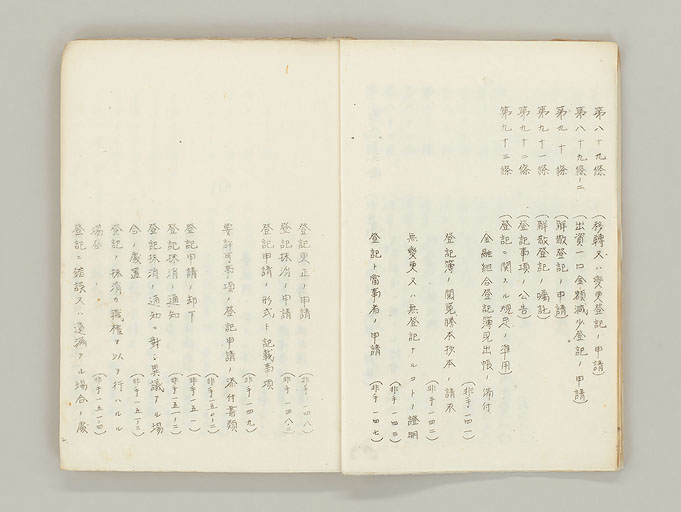 第八十九條 (移轉又ハ變更登記ノ申請)
第八十九條ノ二 (出資一口金額減少登記ノ申請)
第九十條 (解散登記ノ申請)
第九十一條 (解散登記ノ囑託)
第九十二條 (登記事項ノ公告)
第九十三條 (登記ニ關スル規定ノ準用)
金融組合登記簿見出帳ノ備付 (非手一四一)
登記簿ノ閲覽謄本抄本ノ請求 (非手一四二)
無變更又ハ無登記ナルコトノ證明 (非手一四三)
登記ト當事者ノ申請 (非手一四七)
登記更正ノ申請 (非手一四八)
登記抹消ノ申請 (非手一四八ノ二)
登記申請ノ形式ト記載事項 (非手一四九)
要許可事項ノ登記申請ノ添付書類 (非手一五〇ノ二)
登記申請ノ却下 (非手一五一)
登記抹消ノ通知 (非手一五一ノ二)
登記抹消ノ通知ニ對スル異議アル場
合ノ處置 (非手一五一ノ三)
登記ノ抹消ヲ職權ヲ以テ行ハルル
場合 (非手一五一ノ四)
登記ニ錯誤又ハ遺漏アル場合ノ處